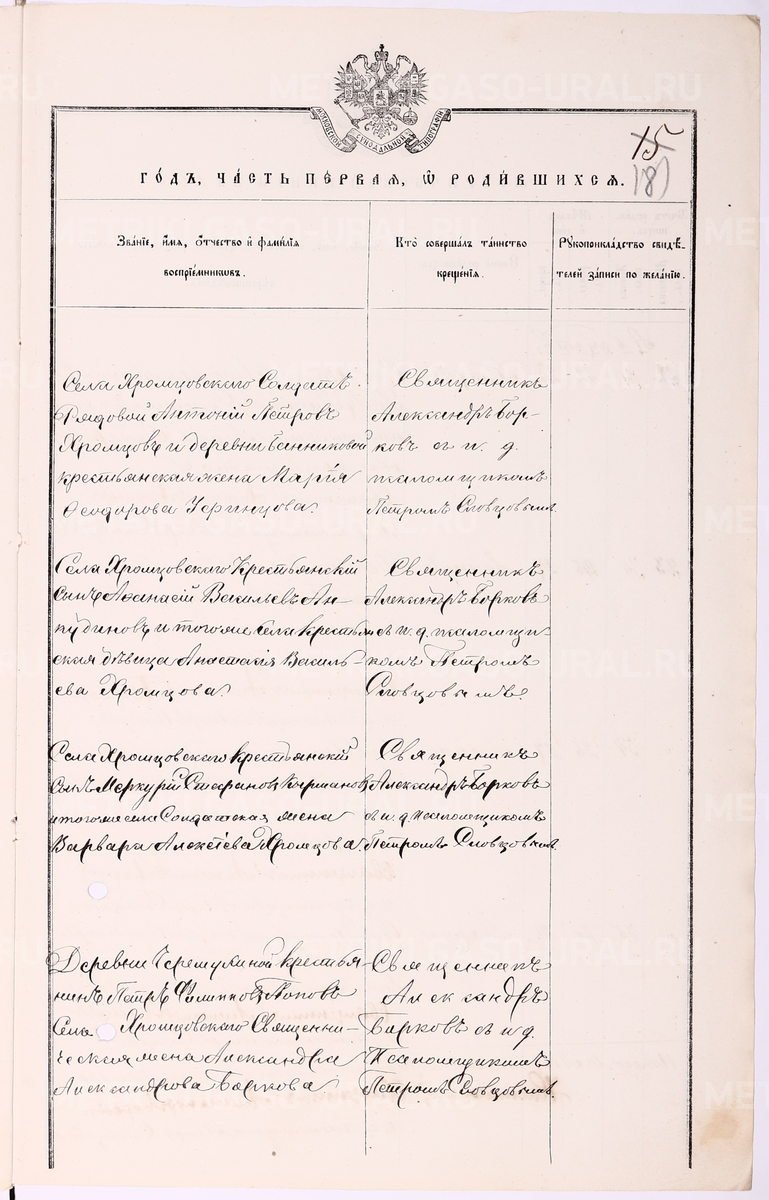 METRICS.GASO-URAL.RU
МОСКОВСКОЙ СѴНОДАЛЬНОЙ ТИПОГРАФІИ
15
181
ГО́ДЪ, ЧА́СТЬ ПЕ́РВАЯ, Ѽ РОДИ́ВШИХСѦ.
Зва́ніе, и́мя, о́тчество и҆ фами́лія
воспріе́мниковъ.
Кто̀ соверша́лъ та́инство
креще́нія.
Рꙋкоприкла́дство свидѣ́-
телей за́писи по жела́нію.
Села Хромцовскаго Солдатъ
Рядовой Антоній Петровъ
Хромцовъ и деревни Банниковой
крестьянская жена Марія
Ѳеодорова
Священникъ
Александръ Бор-
ковъ съ и. д.
псаломщикомъ
Петромъ Словцовымъ
Села Хромцовскаго Крестьянскій
сынъ Аѳанасій Васильевъ Ан-
кудиновъ и тогоже села крестьян
ская дѣвица Анастасія Василь-
ева Хромцова.
Священникъ
Александръ Борковъ
съ и. д. псаломщи-
комъ Петромъ
Словцовымъ.
Села Хромцовскаго крестьянскій
сынъ Меркурій Стефановъ
и тогоже села Солдатская жена
Варвара Алексѣева Хромцова.
Священникъ
Александръ Борковъ
съ и. д. псаломщикомъ
Петромъ Словцовымъ.
Деревни Черемухиной крестья-
нинъ Петръ Филиповъ Поповъ
Села Хромцовскаго Священни-
ческая жена Александра
Александрова Боркова
Священникъ
Александръ
Борковъ съ и д.
Псаломщикомъ
Петромъ Словцовымъ.